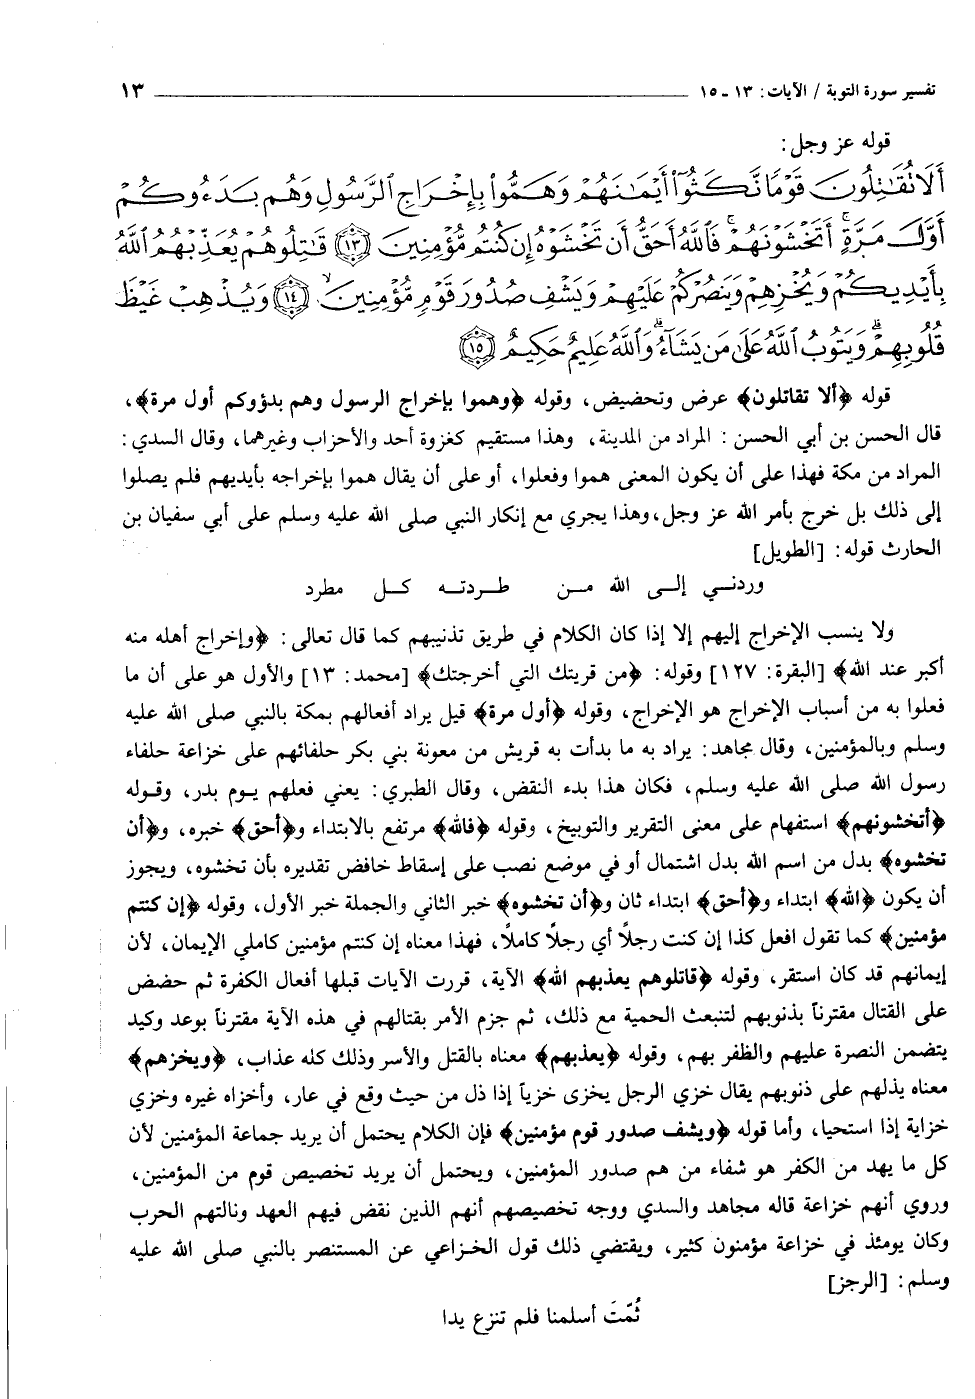 تفسير سورة التوبة / الآيات: ١٣ - ١٥ ١٣
قوله عز وجل:
أَلَا تُقَاتِلُونَ قَوْمًا نَّكَثُوا أَيْمَانَهُمْ وَهَمُّوا بِإِخْرَاجِ الرَّسُولِ وَهُم بَدَءُوكُمْ
أَوَّلَ مَرَّةٍ ۚ أَتَخْشَوْنَهُمْ ۚ فَاللَّهُ أَحَقُّ أَن تَخْشَوْهُ إِن كُنتُم مُّؤْمِنِينَ ﴿١٣﴾ قَاتِلُوهُمْ يُعَذِّبْهُمُ اللَّهُ
بِأَيْدِيكُمْ وَيُخْزِهِمْ وَيَنصُرْكُمْ عَلَيْهِمْ وَيَشْفِ صُدُورَ قَوْمٍ مُّؤْمِنِينَ ﴿١٤﴾ وَيُذْهِبْ غَيْظَ
قُلُوبِهِمْ ۗ وَيَتُوبُ اللَّهُ عَلَىٰ مَن يَشَاءُ ۗ وَاللَّهُ عَلِيمٌ حَكِيمٌ ﴿١٥﴾
قوله ﴿ألا تقاتلون﴾ عرض وتحضيض، وقوله ﴿وهموا بإخراج الرسول وهم بدؤوكم أول مرة﴾،
قال الحسن بن أبي الحسن: المراد من المدينة، وهذا مستقيم كغزوة أحد والأحزاب وغيرهما، وقال السدي:
المراد من مكة فهذا على أن يكون المعنى هموا وفعلوا، أو على أن يقال هموا بإخراجه بأيديهم فلم يصلوا
إلى ذلك بل خرج بأمر الله عز وجل، وهذا يجري مع إنكار النبي صلى الله عليه وسلم على أبي سفيان بن
الحارث قوله: [الطويل]
وردني إلى الله من طردته كل مطرد
ولا ينسب الإخراج إليهم إلا إذا كان الكلام في طريق تذنيبهم كما قال تعالى: ﴿وإخراج أهله منه
أكبر عند الله﴾ [البقرة: ١٢٧] وقوله: ﴿من قريتك التي أخرجتك﴾ [محمد: ١٣] والأول هو على أن ما
فعلوا به من أسباب الإخراج هو الإخراج، وقوله ﴿أول مرة﴾ قيل يراد أفعالهم بمكة بالنبي صلى الله عليه
وسلم وبالمؤمنين، وقال مجاهد: يراد به ما بدأت به قريش من معونة بني بكر حلفائهم على خزاعة حلفاء
رسول الله صلى الله عليه وسلم، فكان هذا بدء النقض، وقال الطبري: يعني فعلهم يوم بدر، وقوله
﴿أتخشونهم﴾ استفهام على معنى التقرير والتوبيخ، وقوله ﴿فالله﴾ مرتفع بالابتداء و﴿أحق﴾ خبره، و﴿أن
تخشوه﴾ بدل من اسم الله بدل اشتمال أو في موضع نصب على إسقاط خافض تقديره بأن تخشوه، ويجوز
أن يكون ﴿الله﴾ ابتداء و﴿أحق﴾ ابتداء ثان و﴿أن تخشوه﴾ خبر الثاني والجملة خبر الأول، وقوله ﴿إن كنتم
مؤمنين﴾ كما تقول افعل كذا إن كنت رجلاً أي رجلاً كاملاً، فهذا معناه إن كنتم مؤمنين كاملي الإيمان، لأن
إيمانهم قد كان استقر، وقوله ﴿قاتلوهم يعذبهم الله﴾ الآية، قررت الآيات قبلها أفعال الكفرة ثم حضض
على القتال مقترناً بذنوبهم لتنبعث الحمية مع ذلك، ثم جزم الأمر بقتالهم في هذه الآية مقترناً بوعد وكيد
يتضمن النصرة عليهم والظفر بهم، وقوله ﴿يعذبهم﴾ معناه بالقتل والأسر وذلك كله عذاب، ﴿ويخزهم﴾
معناه يذلهم على ذنوبهم يقال خزي الرجل يخزى خزياً إذا ذل من حيث وقع في عار، وأخزاه غيره وخزي
خزاية إذا استحيا، وأما قوله ﴿ويشف صدور قوم مؤمنين﴾ فإن الكلام يحتمل أن يريد جماعة المؤمنين لأن
كل ما يهد من الكفر هو شفاء من هم صدور المؤمنين، ويحتمل أن يريد تخصيص قوم من المؤمنين،
وروي أنهم خزاعة قاله مجاهد والسدي ووجه تخصيصهم أنهم الذين نقض فيهم العهد ونالتهم الحرب
وكان يومئذ في خزاعة مؤمنون كثير، ويقتضي ذلك قول الخزاعي عن المستنصر بالنبي صلى الله عليه
وسلم: [الرجز]
ثُمّتَ أسلمنا فلم تنزع يدا